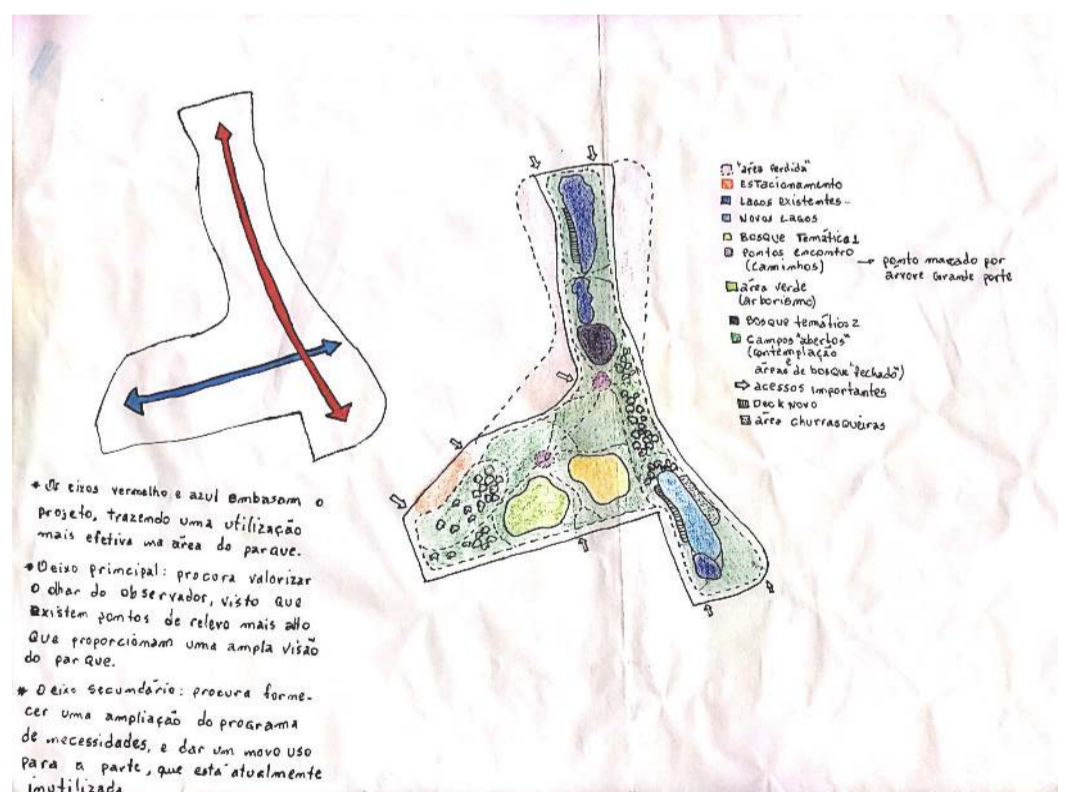 * Os eixos vermelho e azul embasam o
projeto, trazendo uma utilização
mais efetiva na área do parque.
* O eixo principal: procura valorizar
o olhar do observador, visto que
existem pontos de relevo mais alto
que proporcionam uma ampla visão
do parque.
* O eixo secundário: procura forne-
cer uma ampliação do programa
de necessidades, e dar um novo uso
para a parte, que está atualmente
inutilizada
"área perdida"
Estacionamento
Lagos existentes
Novos Lagos
Bosque Temática 1
Pontos encontro
(caminhos)
→ ponto marcado por
árvore Grande porte
área verde
(arborismo)
Bosque temático 2
Campos "abertos"
(contemplação
e
áreas de bosque "fechado")
⇨ acessos importantes
Deck Novo
área churrasqueiras